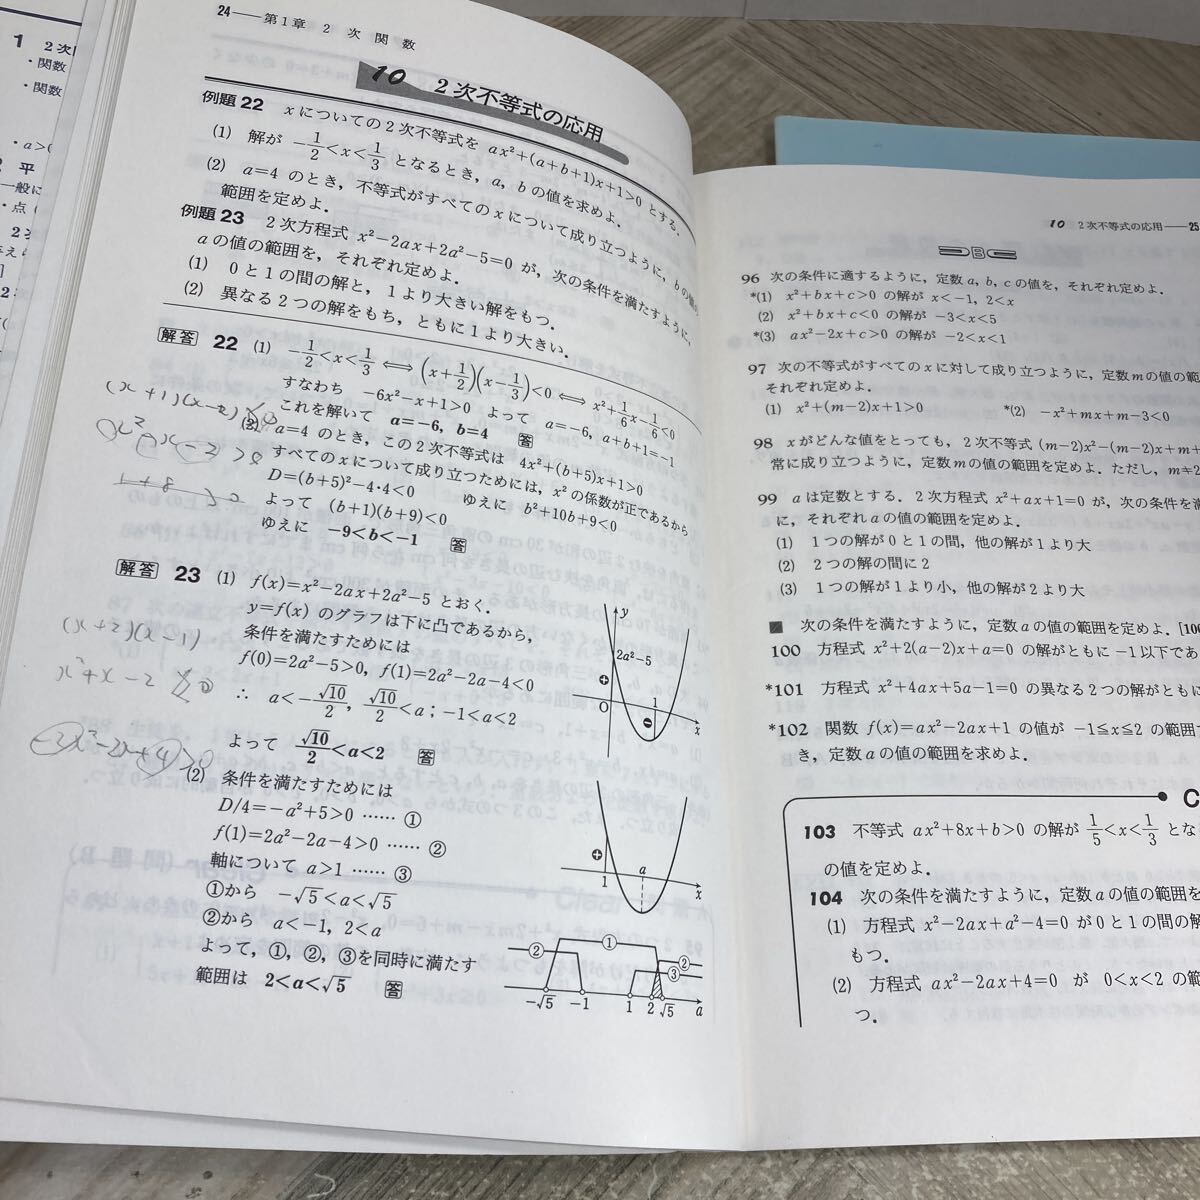 24 第1章 2次関数
10 2次不等式の応用
例題22 xについての2次不等式を ax²+(a+b+1)x+1>0 とする.
(1) 解が -1/2<x<1/3 となるとき, a, b の値を求めよ.
(2) a=4 のとき, 不等式がすべての x について成り立つように, b の値の
範囲を定めよ.
例題23 2次方程式 x²-2ax+2a²-5=0 が, 次の条件を満たすように,
a の値の範囲を, それぞれ定めよ.
(1) 0と1の間の解と, 1より大きい解をもつ.
(2) 異なる2つの解をもち, ともに1より大きい.
解答 22 (1) -1/2<x<1/3 ⟺ (x+1/2)(x-1/3)<0 ⟺ x²+1/6x-1/6<0
すなわち -6x²-x+1>0 よって a=-6, a+b+1=-1
これを解いて a=-6, b=4 答
(2) a=4 のとき, この2次不等式は 4x²+(b+5)x+1>0
すべての x について成り立つためには, x² の係数が正であるから
D=(b+5)²-4・4<0 ゆえに b²+10b+9<0
よって (b+1)(b+9)<0
ゆえに -9<b<-1 答
解答 23 (1) f(x)=x²-2ax+2a²-5 とおく.
y=f(x) のグラフは下に凸であるから,
条件を満たすためには
f(0)=2a²-5>0, f(1)=2a²-2a-4<0
∴ a<-√10/2, √10/2<a ; -1<a<2
よって √10/2<a<2 答
(2) 条件を満たすためには
D/4=-a²+5>0 …… ①
f(1)=2a²-2a-4>0 …… ②
軸について a>1 …… ③
①から -√5<a<√5
②から a<-1, 2<a
よって, ①, ②, ③を同時に満たす
範囲は 2<a<√5 答
y
2a²-5
⊕
O
1
⊖
x
⊕
1
a
x
②
①
②
③
-√5 -1 1 2 √5 a
(x+2)(x-1)
10 2次不等式の応用 25
B
96 次の条件に適するように, 定数 a, b, c の値を, それぞれ定めよ.
*(1) x²+bx+c>0 の解が x<-1, 2<x
(2) x²+bx+c<0 の解が -3<x<5
*(3) ax²-2x+c>0 の解が -2<x<1
97 次の不等式がすべての x に対して成り立つように, 定数 m の値の範
それぞれ定めよ.
(1) x²+(m-2)x+1>0 *(2) -x²+mx+m-3<0
98 x がどんな値をとっても, 2次不等式 (m-2)x²-(m-2)x+m+
常に成り立つように, 定数 m の値の範囲を定めよ. ただし, m≠2
99 a は定数とする. 2次方程式 x²+ax+1=0 が, 次の条件を満
に, それぞれ a の値の範囲を定めよ.
(1) 1つの解が0と1の間, 他の解が1より大
(2) 2つの解の間に2
(3) 1つの解が1より小, 他の解が2より大
■ 次の条件を満たすように, 定数 a の値の範囲を定めよ. [100
100 方程式 x²+2(a-2)x+a=0 の解がともに -1以下であ
*101 方程式 x²+4ax+5a-1=0 の異なる2つの解がともに
*102 関数 f(x)=ax²-2ax+1 の値が -1≦x≦2 の範囲
き, 定数 a の値の範囲を求めよ.
C
103 不等式 ax²+8x+b>0 の解が 1/5<x<1/3 とな
の値を定めよ.
104 次の条件を満たすように, 定数 a の値の範囲を
(1) 方程式 x²-2ax+a²-4=0 が0と1の間の解
もつ.
(2) 方程式 ax²-2ax+4=0 が 0<x<2 の範
つ.